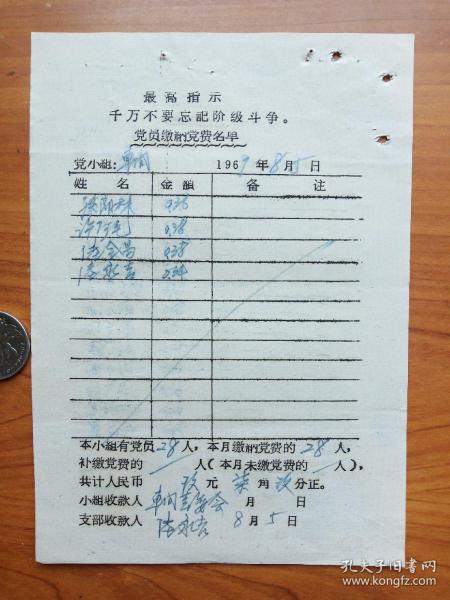 最高指示
千万不要忘记阶级斗争。
党员缴纳党费名单
党小组：车间 1969年8月5日
姓名 金额 备注
0.38
0.38
金昌 0.38
永吉 0.34
本小组有党员28人，本月缴纳党费的28人，
补缴党费的 人（本月未缴党费的 人），
共计人民币 玖元柒角玖分正。
小组收款人 车间 会 月 日
支部收款人 永吉 8月5日
孔夫子旧书网
www.kongfz.com